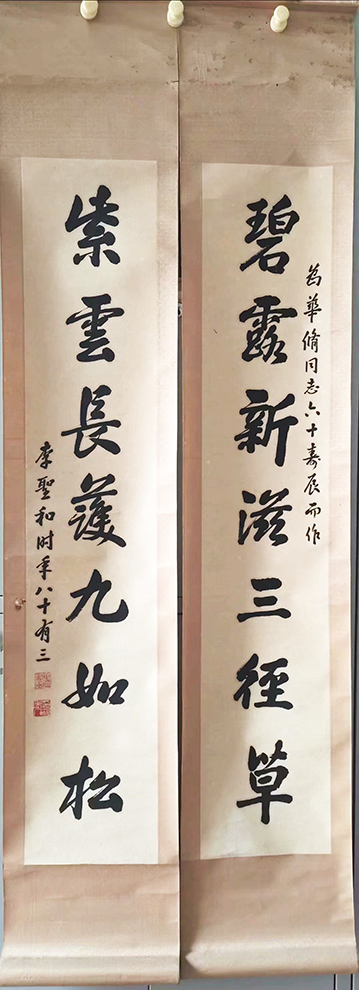 為華脩同志六十壽辰而作
碧露新滋三徑草
紫雲長護九如松
李聖和时年八十有三